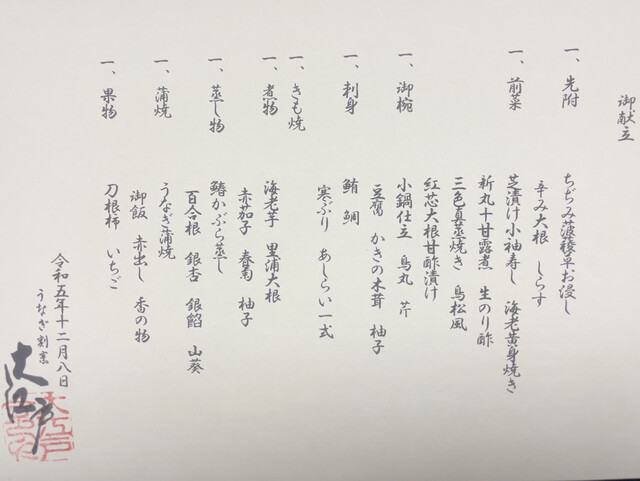 御献立
一、先附
ちぢみ菠薐草お浸し
辛み大根 しらす
一、前菜
芝漬け小袖寿し 海老黄身焼き
新丸十甘露煮 生のり酢
三色真蒸焼き 鳥松風
紅芯大根甘酢漬け
一、御椀
小鍋仕立 鳥丸 芹
豆腐 かきの木茸 柚子
一、刺身
鮪 鯛
寒ぶり あしらい一式
一、きも焼
一、煮物
海老芋 里浦大根
赤茄子 春菊 柚子
一、蒸し物
鰆かぶら蒸し
百合根 銀杏 銀餡 山葵
一、蒲焼
うなぎ蒲焼
御飯 赤出し 香の物
一、果物
刀根柿 いちご
令和五年十二月八日
うなぎ割烹
大江戸